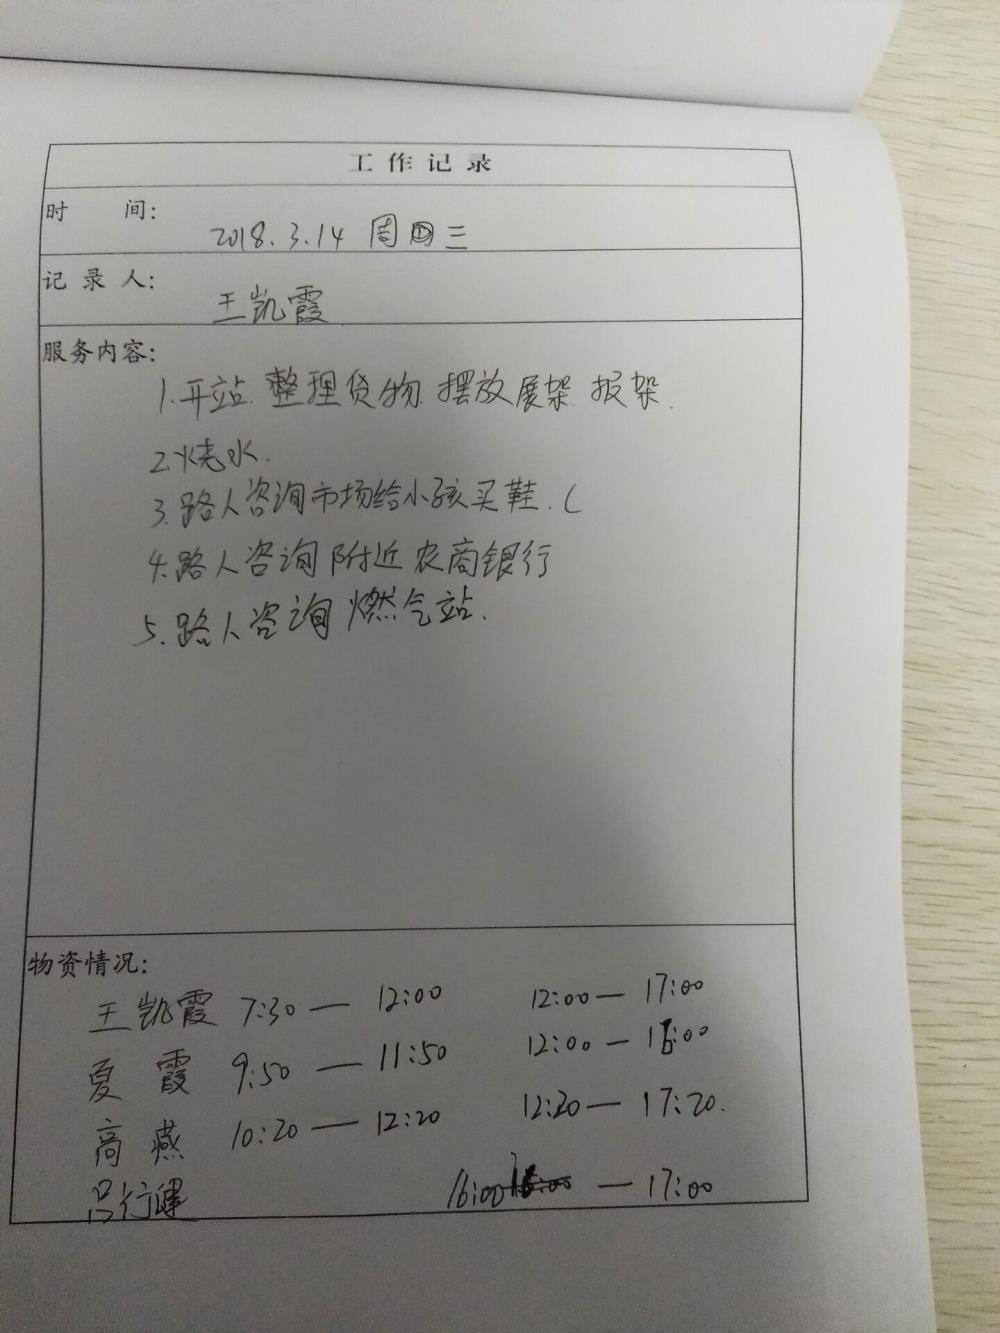 工作记录
时 间:
2018.3.14 周三
记录人:
王凯霞
服务内容:
1.开站.整理货物.摆放展架.报架.
2.烧水.
3.路人咨询市场给小孩买鞋.(
4.路人咨询附近农商银行
5.路人咨询燃气站.
物资情况:
王凯霞 7:30—12:00 12:00—17:00
夏霞 9:50—11:50 12:00—16:00
高燕 10:20—12:20 12:20—17:20.
吕行健 16:00—17:00